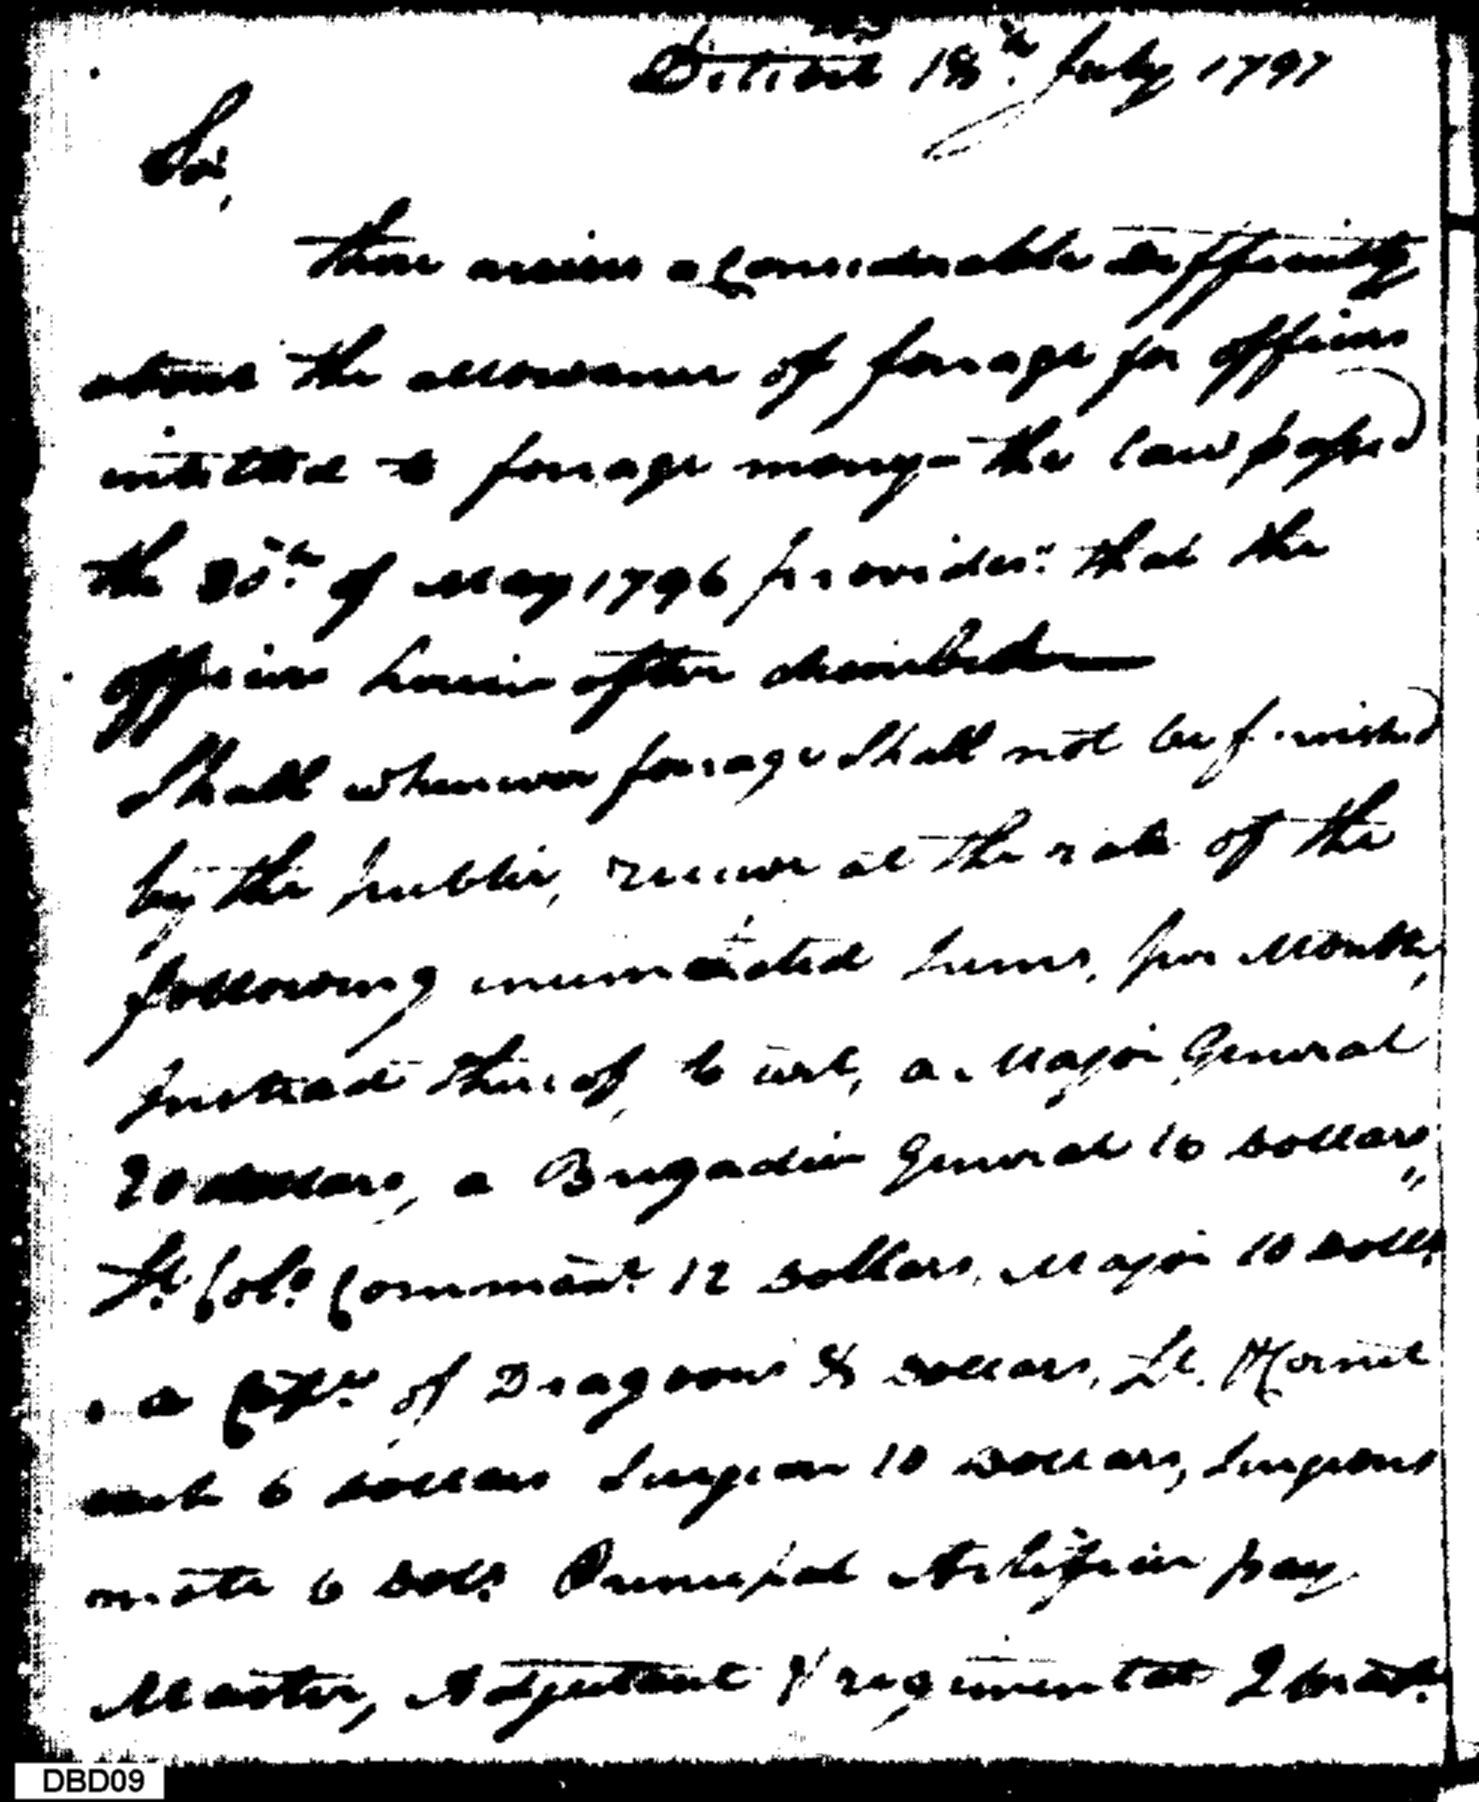 Detroit 18th July 1797
Sir,
There arises a Considerable difficulty
about the allowance of forrage for officers
intitled to forrage money - the law passed
the 30th of May 1796 provides "that the
officers herein after described —
Shall whenever forrage shall not be furnished
by the public, receive at the rate of the
following enumerated sums, per Month,
Instead thereof, to wit, a Major General
20 dollars, a Brigadier General 16 Dollars,
Lt. Colo. Commant. 12 Dollars, Major 10 Dolls.
a Captn. of Dragoons 8 Dollars, Lt. & Cornet
each 6 Dollars Surgeon 10 Dollars, Surgeons
mate 6 Dolls. Principal Artificer pay
Master, Adjutant & regimental Qr mastr.
DBD09